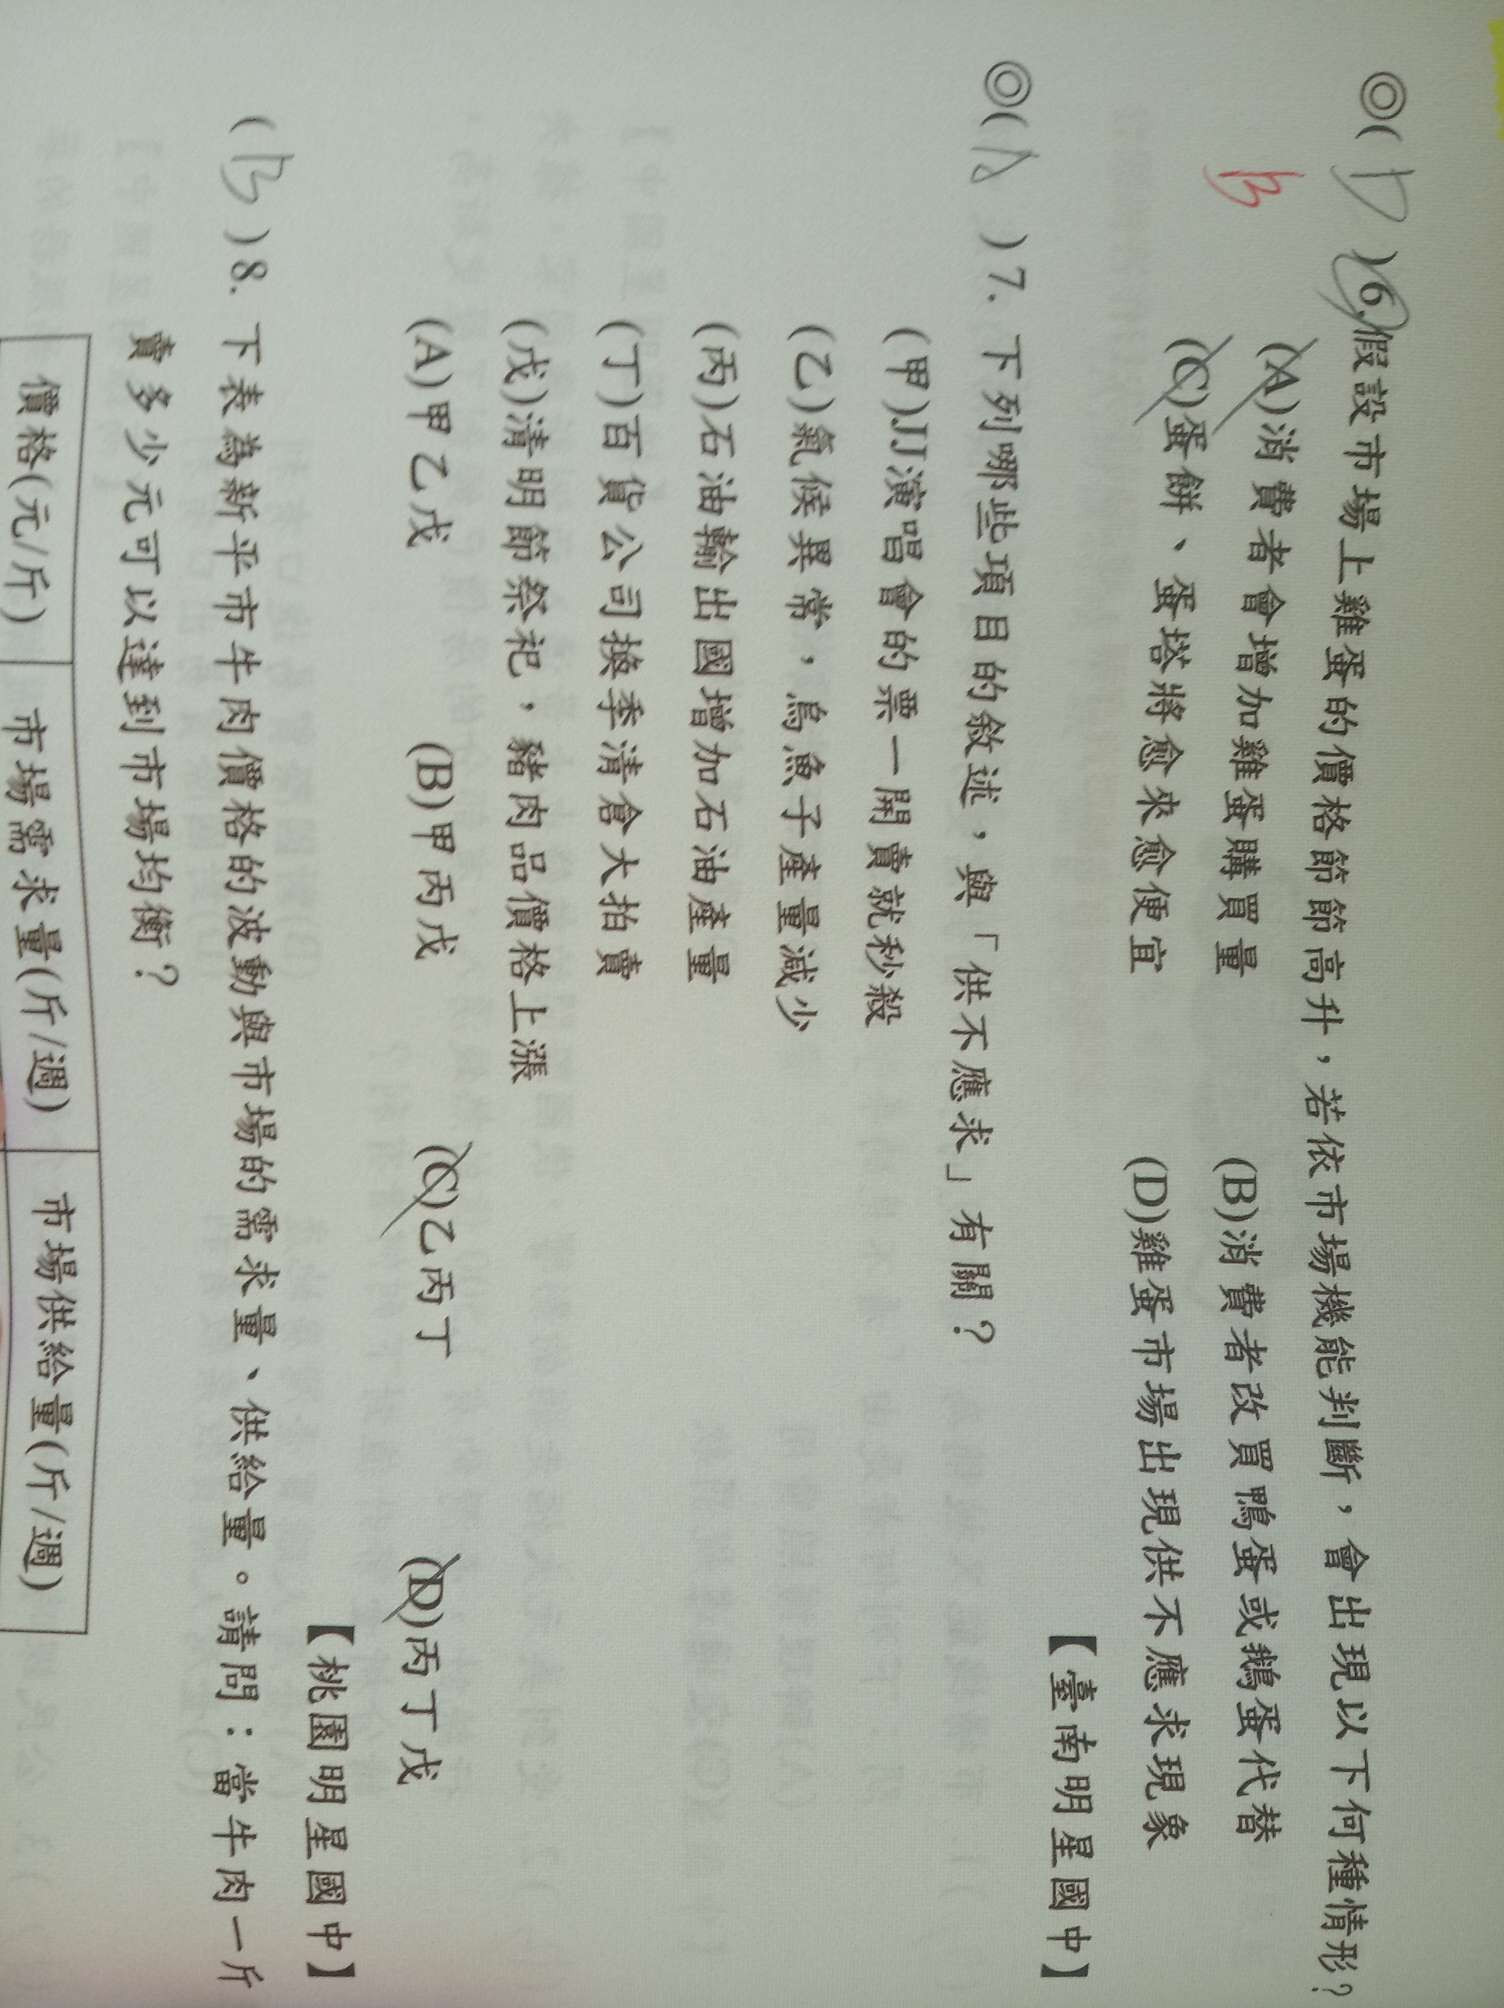 ◎( D )6.假設市場上雞蛋的價格節節高升，若依市場機能判斷，會出現以下何種情形？
B
(A)消費者會增加雞蛋購買量 (B)消費者改買鴨蛋或鵝蛋代替
(C)蛋餅、蛋塔將愈來愈便宜 (D)雞蛋市場出現供不應求現象
【臺南明星國中】
◎( A )7. 下列哪些項目的敘述，與「供不應求」有關？
(甲)JJ演唱會的票一開賣就秒殺
(乙)氣候異常，烏魚子產量減少
(丙)石油輸出國增加石油產量
(丁)百貨公司換季清倉大拍賣
(戊)清明節祭祀，豬肉品價格上漲
(A)甲乙戊 (B)甲丙戊 (C)乙丙丁 (D)丙丁戊
【桃園明星國中】
( B )8. 下表為新平市牛肉價格的波動與市場的需求量、供給量。請問：當牛肉一斤
賣多少元可以達到市場均衡？
價格(元/斤) 市場需求量(斤/週) 市場供給量(斤/週)